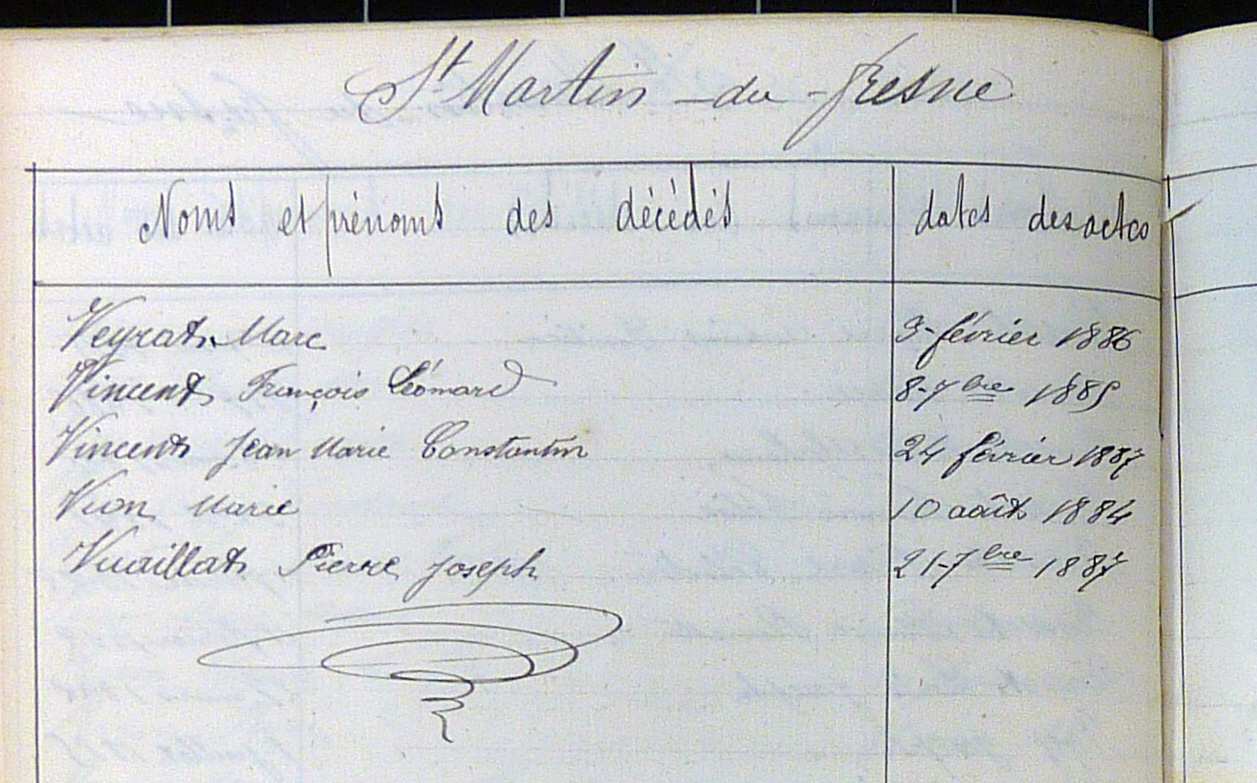 St Martin-du-fresne
Noms et prénoms des décédés dates des actes
Veyrat Marc 3-février 1886
Vincent François Léonard 8-7bre 1885
Vincent Jean Marie Constantin 24 février 1887
Vion Marie 10 août 1884
Vuaillat Pierre Joseph 21-7bre 1887